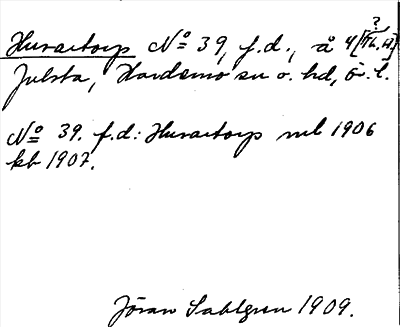 Huvaetorp No 39, f.d., å 4 [Fh. A.]?
Julsta, Hardemo sn o. hd, Ör. l.
No 39. f.d.: Huvaetorp ml 1906
kb 1907.
Jöran Sahlgren 1909.